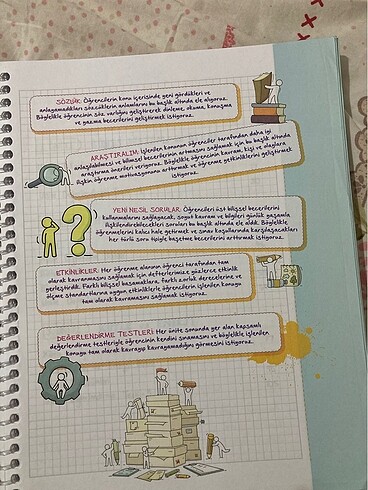 SÖZLÜK: Öğrencilerin konu içerisinde yeni gördükleri ve
anlayamadıkları sözcüklerin anlamlarını bu başlık altında ele alıyoruz.
Böylelikle öğrencinin söz varlığını geliştirerek dinleme, okuma, konuşma
ve yazma becerilerini geliştirmek istiyoruz.
ARAŞTIRALIM: İşlenilen konunun öğrenciler tarafından daha iyi
anlaşılabilmesi ve bilimsel becerilerinin artmasını sağlamak için bu başlık altında
araştırma önerileri veriyoruz. Böylelikle öğrencinin kavram, kişi ve olaylara
ilişkin öğrenme motivasyonunu arttırmak ve öğrenme yetkinliklerini geliştirmek
istiyoruz.
YENİ NESİL SORULAR: Öğrencileri üst bilişsel becerilerini
kullanmalarını sağlayacak, soyut kavram ve bilgileri günlük yaşamla
ilişkilendirebilecekleri soruları bu başlık altında ele aldık. Böylelikle
öğrenmeleri kalıcı hale getirmek ve sınav koşullarında karşılaşacakları
her türlü soru tipiyle başetme becerilerini arttırmak istiyoruz.
ETKİNLİKLER: Her öğrenme alanının öğrenci tarafından tam
olarak kavranmasını sağlamak için defterlerimize yüzlerce etkinlik
yerleştirdik. Farklı bilişsel basamaklara, farklı zorluk derecelerine ve
ölçme standartlarına uygun etkinliklerle öğrencilerin işlenilen konuyu
tam olarak kavramasını sağlamak istiyoruz.
DEĞERLENDİRME TESTLERİ: Her ünite sonunda yer alan kapsamlı
değerlendirme testleriyle öğrencinin kendini sınamasını ve böylelikle işlenilen
konuyu tam olarak kavrayıp kavrayamadığını görmesini istiyoruz.